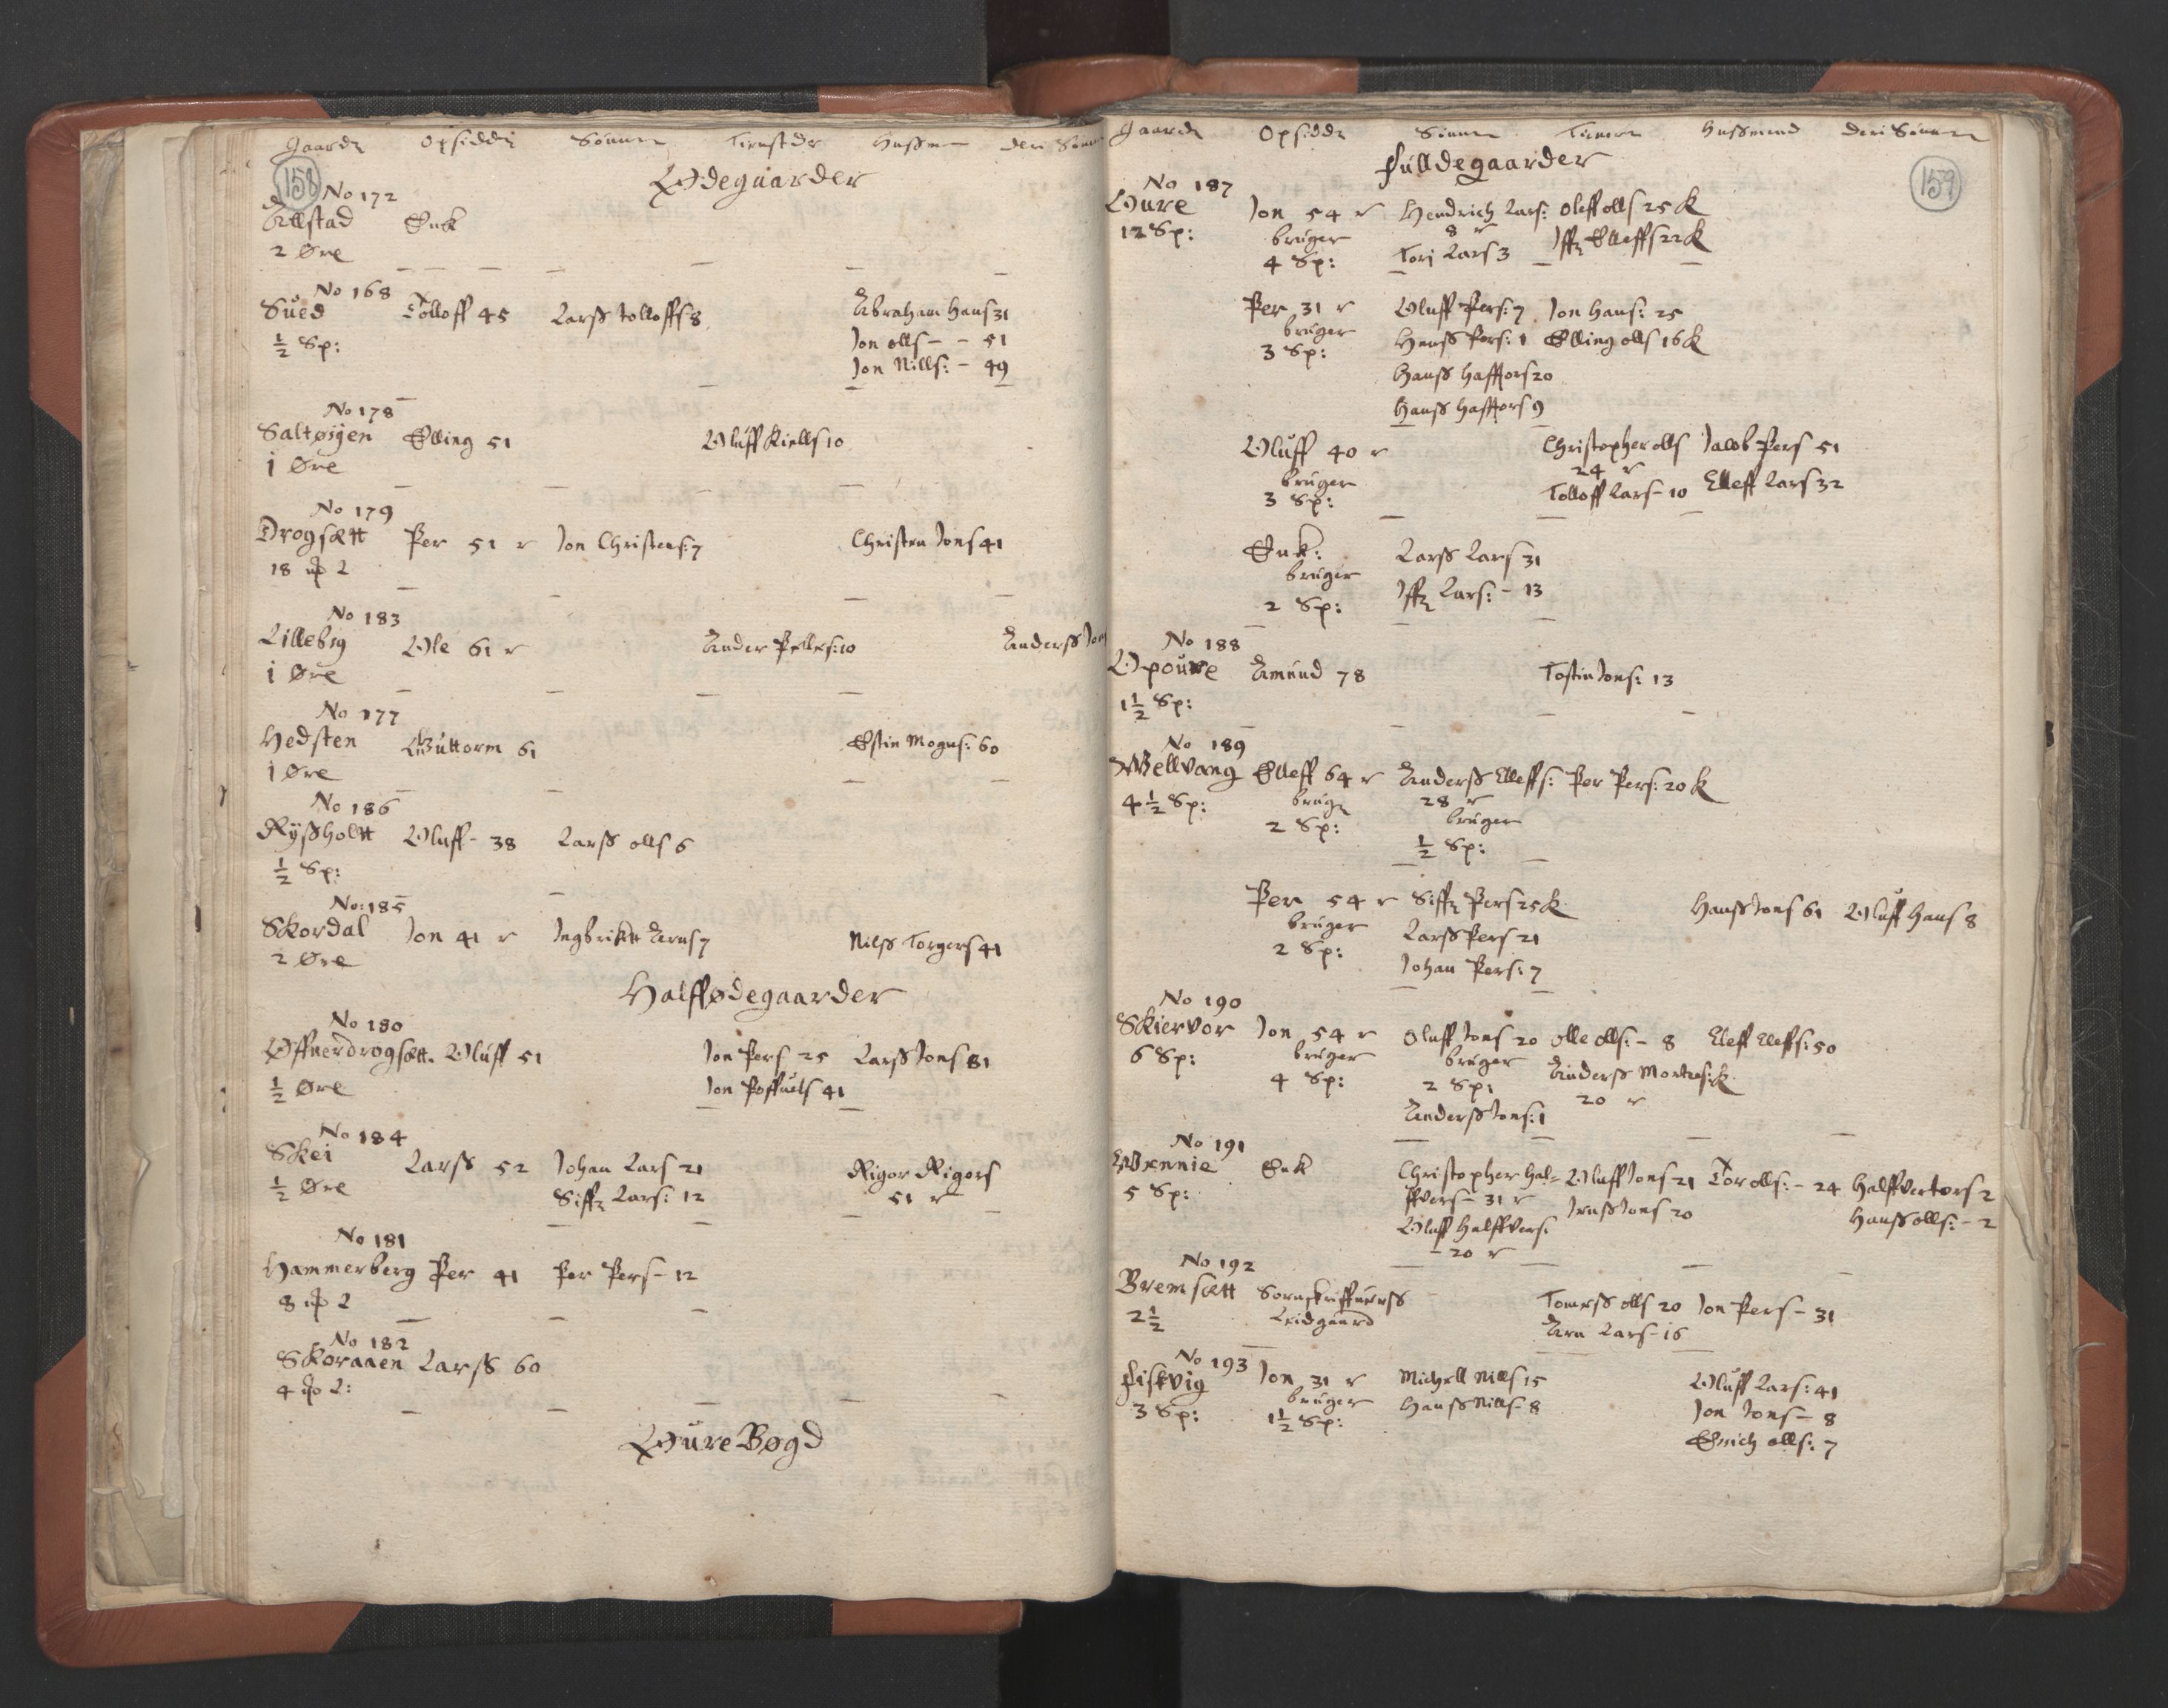 Gaarde Opsidde Sønner Tienstdr Hussm den Sønn
158
Ødegaarder
No 172
Allstad Enk
2 Øre
No 168
Sued Tolloff 45 Larss tolloffs 8 Abraham Hans 31
½ Sp: Jon olls - - 51
Jon Nills: - 49
No 178
Saltøijen Elling 51 Oluff Kiells 10
1 Øre
No 179
Drogsætt Per 51 r Jon Christens: 7 Christen Jons 41
18
No 183
Lilleby Ole 61 r Ander Pellers: 10 Anderss Jon
1 Øre
No 177
Hedsten Guttorm 61 Estin Mogns: 60
1 Øre
No 186
Rÿssholtt Oluff - 38 Larss olls 6
½ Sp:
No: 185
Skordal Jon 41 r Ingbriktt Arns 7 Nilss Torgers 41
2 Øre
Halffødegaarder
No 180
Øffuerdrogsætt. Oluff 51 Jon Pers 25 Larss Jons 81
½ Øre Jon Poffuels 41
No 184
Skei Larss 52 Johan Lars 21 Rigor Rigors
½ Øre Siffr Lars: 12 51 r
No 181
Hammerberg Per 41 Per Pers - 12
8
No 182
Skoraaen Larss 60
4
Oure Bøgd
Gaarde Opsidde Sønner Tienere Hussmend deris Sønner
159
fulldegaarder
No 187
Oure Jon 54 r Hendrich Lars: Oleff olls 25 K
12 Sp: bruger 8 r Iffr Elleffs 22 K
4 Sp: Tori Lars 3
Per 31 r Oluff Pers: 7 Jon Hans: 25
bruger Hanss Pers: 1 Elling olls 16 K
3 Sp: Hanss Haffors 20
Hanss Haffors 9
Oluff 40 r Christopher olls Jacob Pers 51
bruger 24 r
3 Sp: Tolloff Lars - 10 Elleff Lars 32
Enk: Larss Lars 31
bruger
2 Sp: Iffr Lars: - 13
No 188
Opoure Amund 78 Tostin Jons: 13
1½ Sp:
No 189
Wellvang Elleff 64 r Anderss Elleffs: Per Pers: 20 K
4½ Sp: brugr 28 r
2 Sp: bruger
½ Sp:
Per 54 r Siffr Pers 25 K Hanss Jons 61 Oluff Hans 8
bruger Larss Pers 21
2 Sp: Johan Pers: 7
No 190
Skiervor Jon 54 r Oluff Jons 20 olle olls: - 8 Eleff Eleffs: 50
6 Sp: bruger bruger Anderss Mortens: K
4 Sp: 2 Sp: 20 r
Anderss Jons: 1
No 191
Wennie Enk Christopher Hal= Oluff Jons 21 Tor olls: - 24 Halffver tors 2
5 Sp: ffvers - 31 r Jenss Jons 20 Hanss olls: - 2
Oluff Halffvers:
- 20 r
No 192
Bremsætt Sornskriffuerss Tomess olls 20 Jon Pers - 31
2½ Leidgaard Arn Lars - 16
No 193
fiskvig Jon 31 r Michell Nills 15 Oluff Lars: 41
3 Sp: bruger Hanss Nills - 8 Jon Jons - 8
1½ Sp: Enich olls: 7